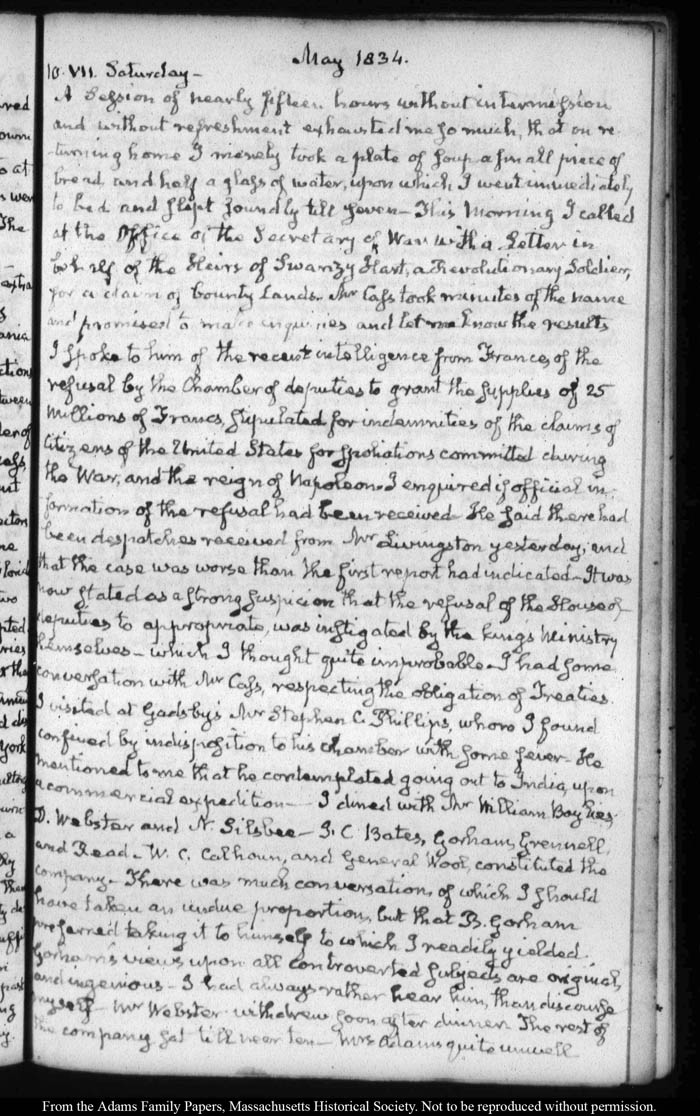 May 1834.
10. VII. Saturday—
A Session of nearly fifteen hours without intermission
and without refreshment exhausted me so much, that on re-
turning home I merely took a plate of soup a small piece of
bread and half a glass of water, upon which I went immediately
to bed and slept soundly till seven— This Morning I called
at the Office of the Secretary of War with a Letter in
behalf of the Heirs of Swanzy Hart, a Revolutionary Soldier,
for a claim of bounty Lands. Mr Cass took minutes of the name
and promised to make inquiries and let me know the results
I spoke to him of the recent intelligence from France, of the
refusal by the Chamber of deputies to grant the supplies of 25
Millions of Francs, stipulated for indemnities of the claims of
Citizens of the United States for spoliations committed during
the War, and the reign of Napoleon. I enquired if official in-
formation of the refusal had been received— He said there had
been despatches received from Mr Livingston yesterday; and
that the case was worse than the first report had indicated— It was
now stated as a strong suspicion that the refusal of the House of
deputies to appropriate, was instigated by the king's Ministry
themselves— which I thought quite improbable— I had some
conversation with Mr Cass, respecting the obligation of Treaties.
I visited at Gadsby's Mr Stephen C. Phillips, whom I found
confined by indisposition to his chamber with some fever— He
mentioned to me that he contemplated going out to India, upon
a commercial expedition— I dined with Mr William Baylies,
D. Webster and N. Silsbee— I. C. Bates, Gorham, Grennell,
and Read— W. C. Calhoun, and General Wool, constituted the
company— There was much conversation, of which I should
have taken an undue proportion, but that B. Gorham
preferred taking it to himself to which I readily yielded.
Gorham's views upon all controverted subjects are original,
and ingenious— I had always rather hear him, than discourse
myself— Mr Webster withdrew soon after dinner. The rest of
the company sat till near ten— Mrs Adams quite unwell
From the Adams Family Papers, Massachusetts Historical Society. Not to be reproduced without permission.